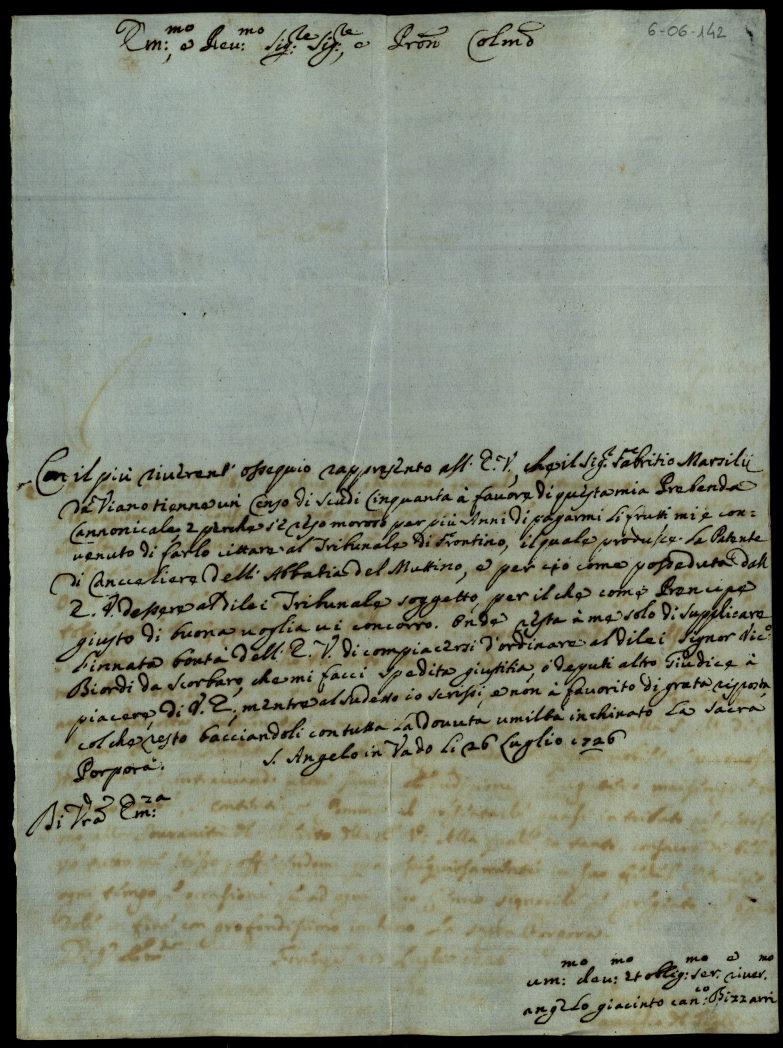 6-06-142
Em:mo, e Reu:mo Sig:re Sig:re, e Pron Colmo
Con il più riuerent' ossequio rappresento all' E. V., che il Sig:r Fabritio Marsilii
da Viano tienne un Censo di scudi Cinquanta à fauore di questa mia Prebenda
Cannonicale e perche s'è reso moroso per più Anni di pagarmi li frutti mi è con=
uenuto di farlo cittare al Tribunale di Frontino, il quale produsse la Patente
di Canceliere dell' Abbatia del Muttino, e per ciò come posseduta dall'
E. V. d'essere al di lei Tribunale soggetto, per il che come Prencipe
giusto di buona voglia ui concorro. Onde resta à me solo di supplicare
l'innata bontà dell' E. V. di compiacersi d'ordinare al di lei Signor Vic:o
Biordi da Scorbaro, che mi facci spedita giustitia, ò deputi altro Giudice à
piacere di V. E., mentre al sudetto io scrissi, e non à fauorito di grata risposta
col che resto bacciandoli con tutta la douuta umiltà inchinato La Sacra
Porpora. S. Angelo in Vado li 26 Luglio 1726
Di Vra Em:za
um:mo deu:mo et oblig:mo ser:e riuer:mo
angelo giacinto can:co Bizzarri